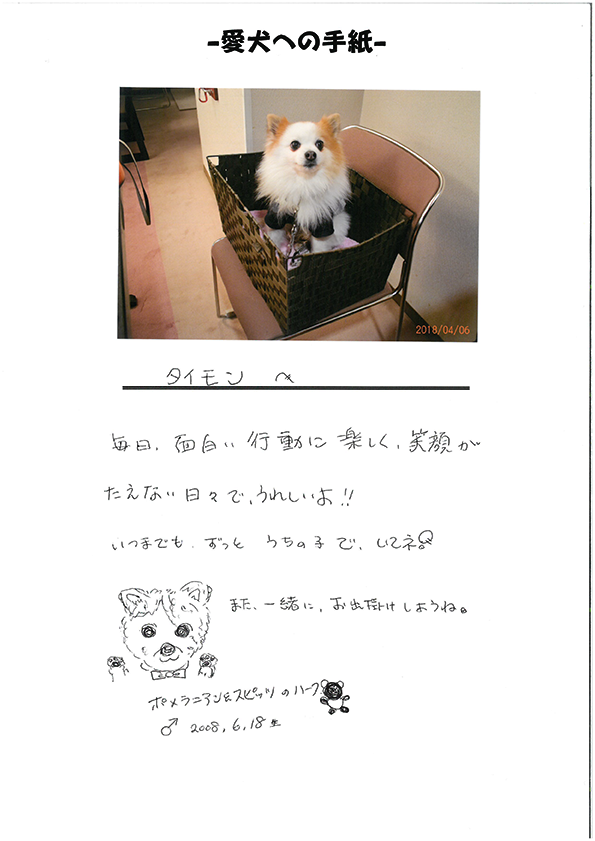 -愛犬への手紙-
2018/04/06
タイモン へ
毎日、面白い行動に楽しく、笑顔が
たえない日々で、うれしいよ!!
いつまでも、ずっと うちの子で、いてネ。
また、一緒に、お出掛けしようね。
ポメラニアン&スピッツのハーフ
♂ 2008,6,18生